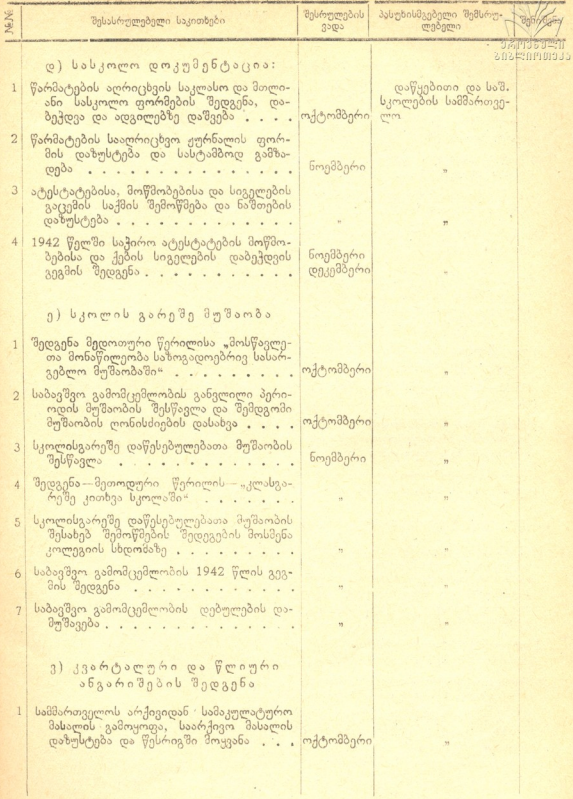 №№ შესასრულებელი საკითხები შესრულების ვადა პასუხისმგებელი შემსრულებელი
ეროვნული
ბიბლიოთეკა
დ) სასკოლო დოკუმენტაცია:
1 წარმატების აღრიცხვის საკლასო და მთლი- დაწყებითი და საშ.
ანი სასკოლო ფორმების შედგენა, და- სკოლების სამმართვე-
ბეჭდვა და ადგილებზე დაშვება . . . . ოქტომბერი ლო
2 წარმატების სააღრიცხვო ჟურნალის ფორ-
მის დაზუსტება და სასტამბოდ გამზა-
დება . . . . . . . . . . . . . ნოემბერი „
3 ატესტატებისა, მოწმობებისა და სიგელების
გაცემის საქმის შემოწმება და ნაშთების
დაზუსტება . . . . . . . . . . . „ „
4 1942 წელში საჭირო ატესტატების მოწმო-
ბებისა და ქების სიგელების დაბეჭდვის ნოემბერი
გეგმის შედგენა . . . . . . . . . . დეკემბერი „
ე) სკოლის გარეშე მუშაობა
1 შედგენა მეთოთური წერილისა „მოსწავლე-
თა მონაწილეობა საზოგადოებრივ სასარ-
გებლო მუშაობაში“ . . . . . . . . ოქტომბერი „
2 საბავშვო გამომცემლობის განვლილი პერი-
ოდის მუშაობის შესწავლა და შემდგომი
მუშაობის ღონისძიების დასახვა . . . . ოქტომბერი „
3 სკოლისგარეშე დაწესებულებათა მუშაობის
შესწავლა . . . . . . . . . . . ნოემბერი „
4 შედგენა—მეთოდური წერილის—„კლასგა-
რეშე კითხვა სკოლაში“ . . . . . . „ „
5 სკოლისგარეშე დაწესებულებათა მუშაობის
შესახებ შემოწმების შედეგების მოსმენა
კოლეგიის სხდომაზე . . . . . . . . . „ „
6 საბავშვო გამომცემლობის 1942 წლის გეგ-
მის შედგენა . . . . . . . . . . . „ „
7 საბავშვო გამომცემლობის დებულების და-
მუშავება . . . . . . . . . . . . . „ „
ვ) კვარტალური და წლიური
ანგარიშების შედგენა
1 სამმართველოს არქივიდან სამაკულატურო
მასალის გამოყოფა, საარქივო მასალის
დაზუსტება და წესრიგში მოყვანა . . . ოქტომბერი „